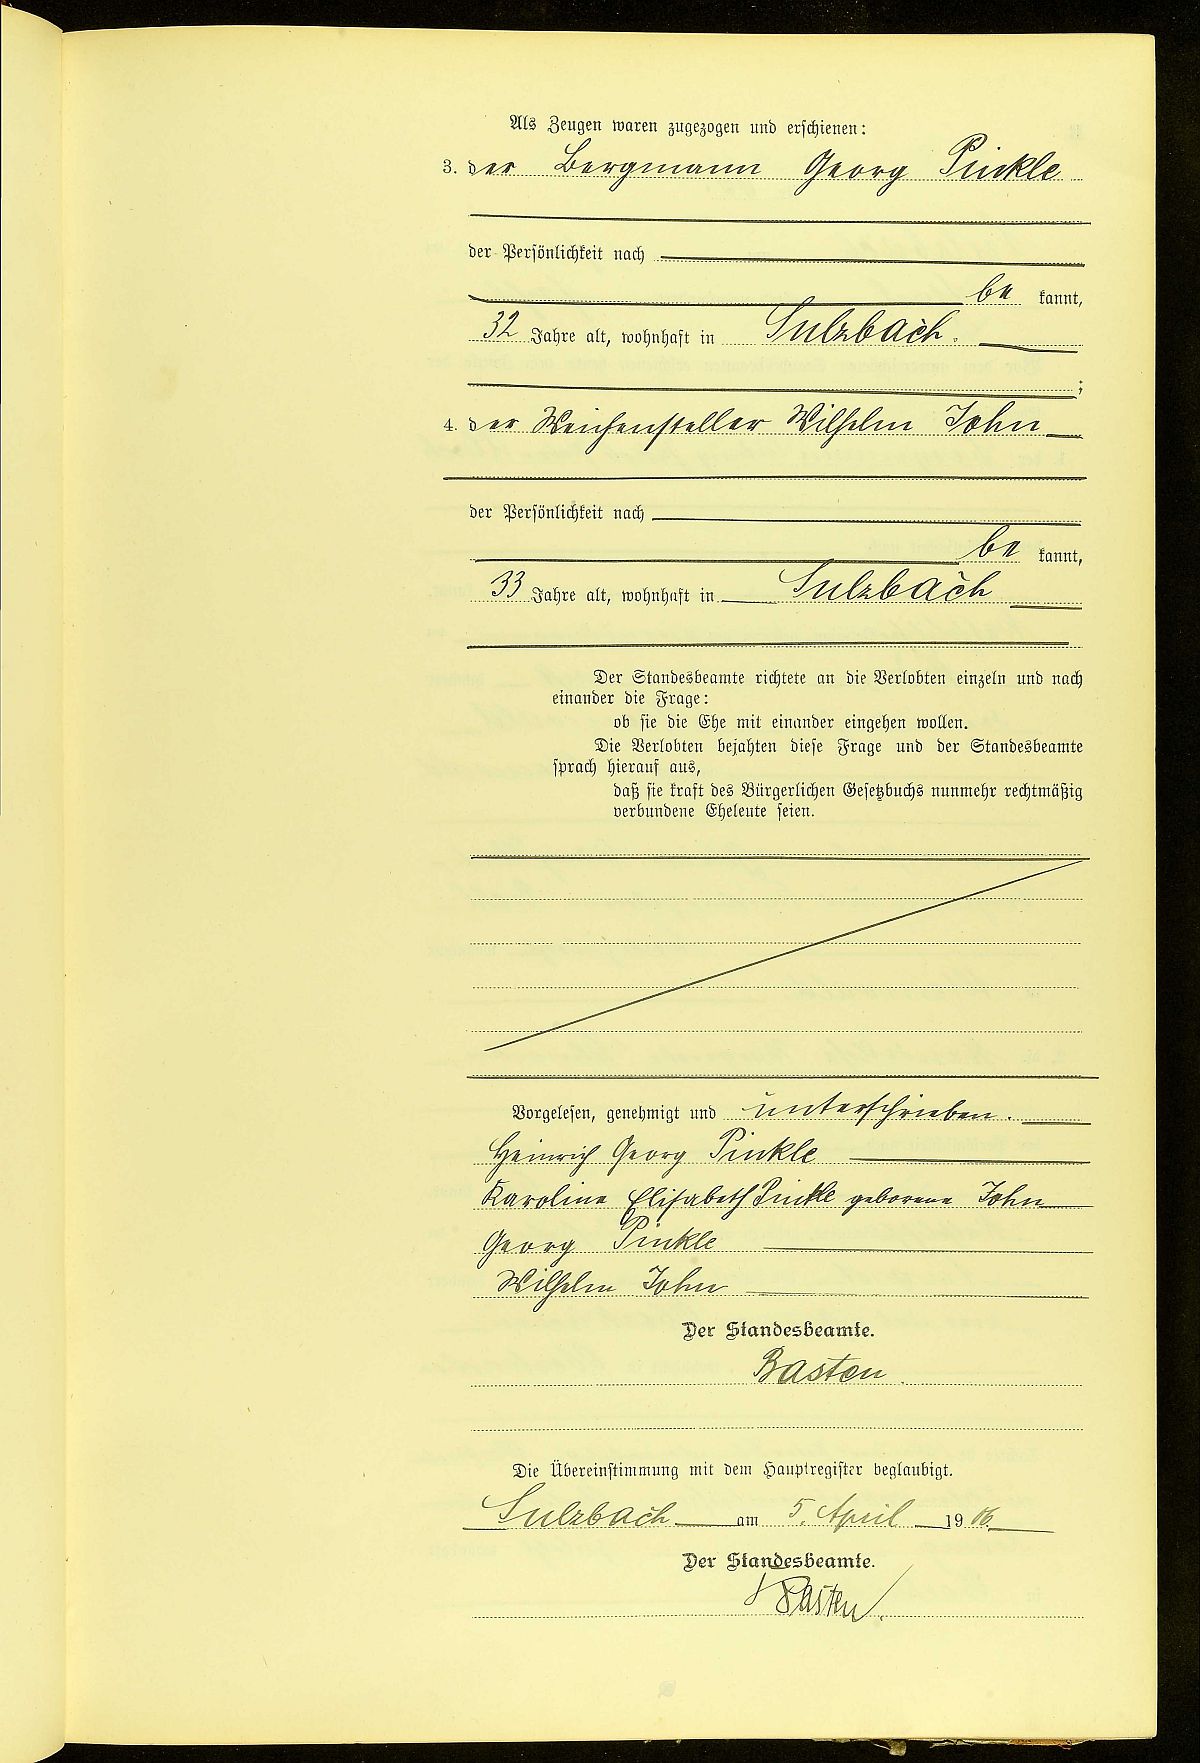 Als Zeugen waren zugezogen und erschienen:
3. der Bergmann Georg Pinkle
der Persönlichkeit nach
be kannt,
32 Jahre alt, wohnhaft in Sulzbach.
;
4. der Weichensteller Wilhelm John
der Persönlichkeit nach
be kannt,
33 Jahre alt, wohnhaft in Sulzbach
Der Standesbeamte richtete an die Verlobten einzeln und nach
einander die Frage:
ob sie die Ehe mit einander eingehen wollen.
Die Verlobten bejahten diese Frage und der Standesbeamte
sprach hierauf aus,
daß sie kraft des Bürgerlichen Gesetzbuchs nunmehr rechtmäßig
verbundene Eheleute seien.
Vorgelesen, genehmigt und unterschrieben.
Heinrich Georg Pinkle
Karoline Elisabeth Pinkle geborene John
Georg Pinkle
Wilhelm John
Der Standesbeamte.
Basten.
Die Übereinstimmung mit dem Hauptregister beglaubigt.
Sulzbach am 5. April 1906
Der Standesbeamte.
Basten.